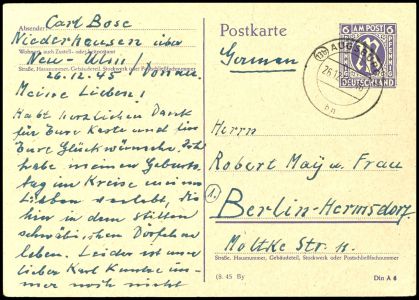 Absender: Carl Bose
Niederhausen über
Wohnort, auch Zustell- oder Leitpostamt
Neu-Ulm / Donau.
Straße, Hausnummer, Gebäudeteil, Stockwerk oder Postschließfachnummer
26.12.45
Meine Lieben!
Habt herzlichen Dank
für Eure Karte und die
Eure Glückwünsche. Ich
habe meinen Geburts-
tag im Kreise meiner
Lieben verlebt, die
hier in dem stillen
schwäbischen Dörfchen
leben. Leider ist unser
lieber Karl Kuntze im-
mer noch nicht
Postkarte
6 AM POST 6
PFENNIG
DEUTSCHLAND
German
Herrn
Robert May u. Frau
Berlin-Hermsdorf
Moltke Str. 11.
Straße, Hausnummer, Gebäudeteil, Stockwerk oder Postschließfachnummer
(8. 45 By
Din A 6